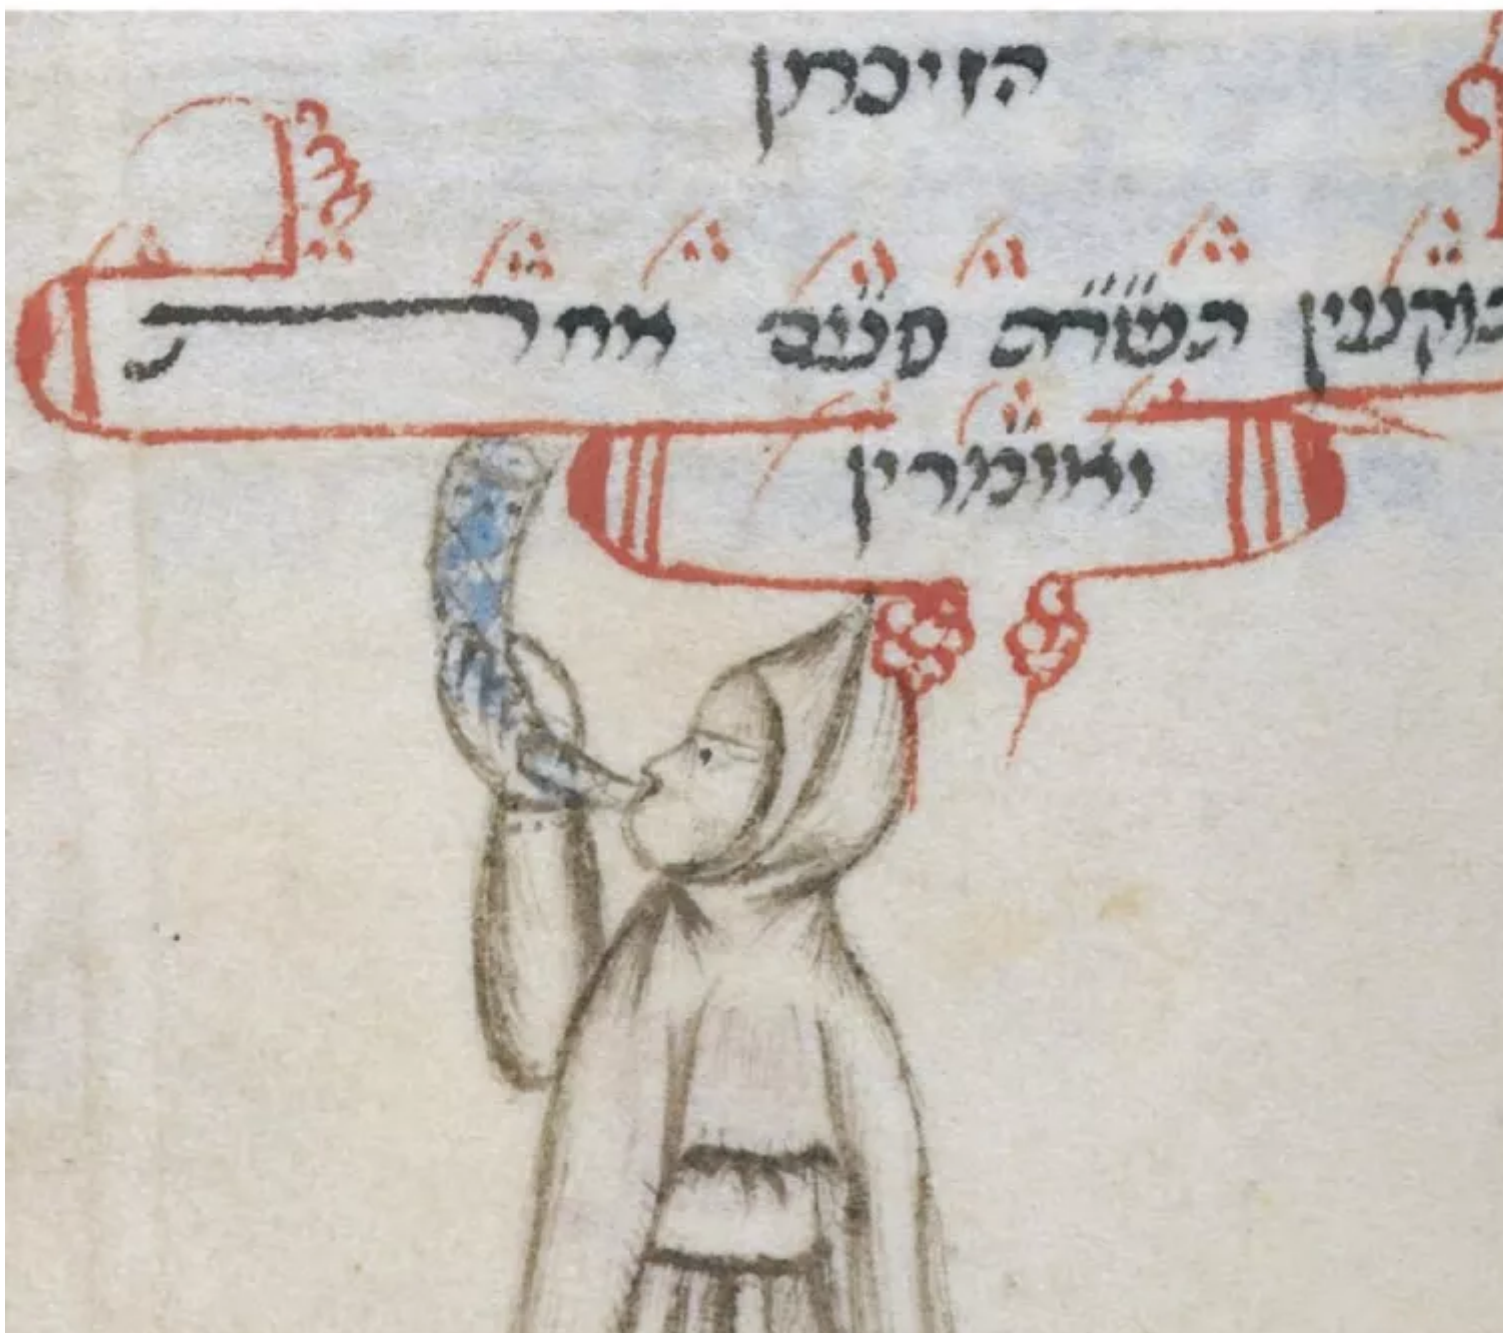 הזיכרון
תוקעין תשרת פעם אחרת
ואומרין